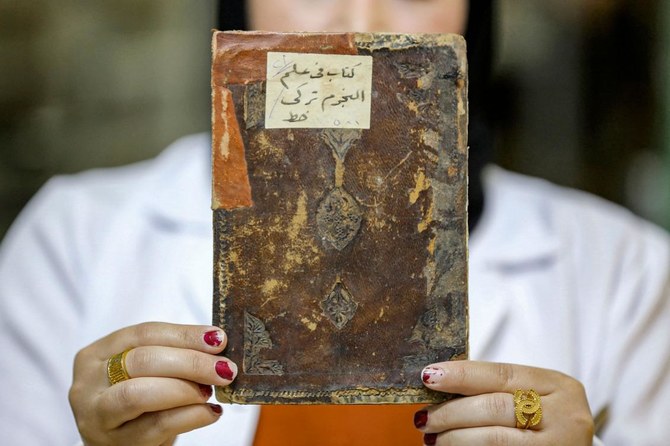 كتاب في علم
النجوم تركي
خط
٥٨١